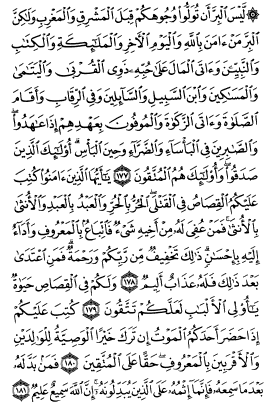 ۞ لَّيْسَ ٱلْبِرَّ أَن تُوَلُّوا۟ وُجُوهَكُمْ قِبَلَ ٱلْمَشْرِقِ وَٱلْمَغْرِبِ وَلَٰكِنَّ
ٱلْبِرَّ مَنْ ءَامَنَ بِٱللَّهِ وَٱلْيَوْمِ ٱلْءَاخِرِ وَٱلْمَلَٰٓئِكَةِ وَٱلْكِتَٰبِ
وَٱلنَّبِيِّۦنَ وَءَاتَى ٱلْمَالَ عَلَىٰ حُبِّهِۦ ذَوِى ٱلْقُرْبَىٰ وَٱلْيَتَٰمَىٰ
وَٱلْمَسَٰكِينَ وَٱبْنَ ٱلسَّبِيلِ وَٱلسَّآئِلِينَ وَفِى ٱلرِّقَابِ وَأَقَامَ
ٱلصَّلَوٰةَ وَءَاتَى ٱلزَّكَوٰةَ وَٱلْمُوفُونَ بِعَهْدِهِمْ إِذَا عَٰهَدُوا۟ ۖ
وَٱلصَّٰبِرِينَ فِى ٱلْبَأْسَآءِ وَٱلضَّرَّآءِ وَحِينَ ٱلْبَأْسِ ۗ أُو۟لَٰٓئِكَ ٱلَّذِينَ
صَدَقُوا۟ ۖ وَأُو۟لَٰٓئِكَ هُمُ ٱلْمُتَّقُونَ ١٧٧ يَٰٓأَيُّهَا ٱلَّذِينَ ءَامَنُوا۟ كُتِبَ
عَلَيْكُمُ ٱلْقِصَاصُ فِى ٱلْقَتْلَى ۖ ٱلْحُرُّ بِٱلْحُرِّ وَٱلْعَبْدُ بِٱلْعَبْدِ وَٱلْأُنثَىٰ
بِٱلْأُنثَىٰ ۚ فَمَنْ عُفِىَ لَهُۥ مِنْ أَخِيهِ شَىْءٌ فَٱتِّبَاعٌۢ بِٱلْمَعْرُوفِ وَأَدَآءٌ
إِلَيْهِ بِإِحْسَٰنٍ ۗ ذَٰلِكَ تَخْفِيفٌ مِّن رَّبِّكُمْ وَرَحْمَةٌ ۗ فَمَنِ ٱعْتَدَىٰ
بَعْدَ ذَٰلِكَ فَلَهُۥ عَذَابٌ أَلِيمٌ ١٧٨ وَلَكُمْ فِى ٱلْقِصَاصِ حَيَوٰةٌ
يَٰٓأُو۟لِى ٱلْأَلْبَٰبِ لَعَلَّكُمْ تَتَّقُونَ ١٧٩ كُتِبَ عَلَيْكُمْ
إِذَا حَضَرَ أَحَدَكُمُ ٱلْمَوْتُ إِن تَرَكَ خَيْرًا ٱلْوَصِيَّةُ لِلْوَٰلِدَيْنِ
وَٱلْأَقْرَبِينَ بِٱلْمَعْرُوفِ ۖ حَقًّا عَلَى ٱلْمُتَّقِينَ ١٨٠ فَمَنۢ بَدَّلَهُۥ
بَعْدَ مَا سَمِعَهُۥ فَإِنَّمَآ إِثْمُهُۥ عَلَى ٱلَّذِينَ يُبَدِّلُونَهُۥٓ ۚ إِنَّ ٱللَّهَ سَمِيعٌ عَلِيمٌ ١٨١